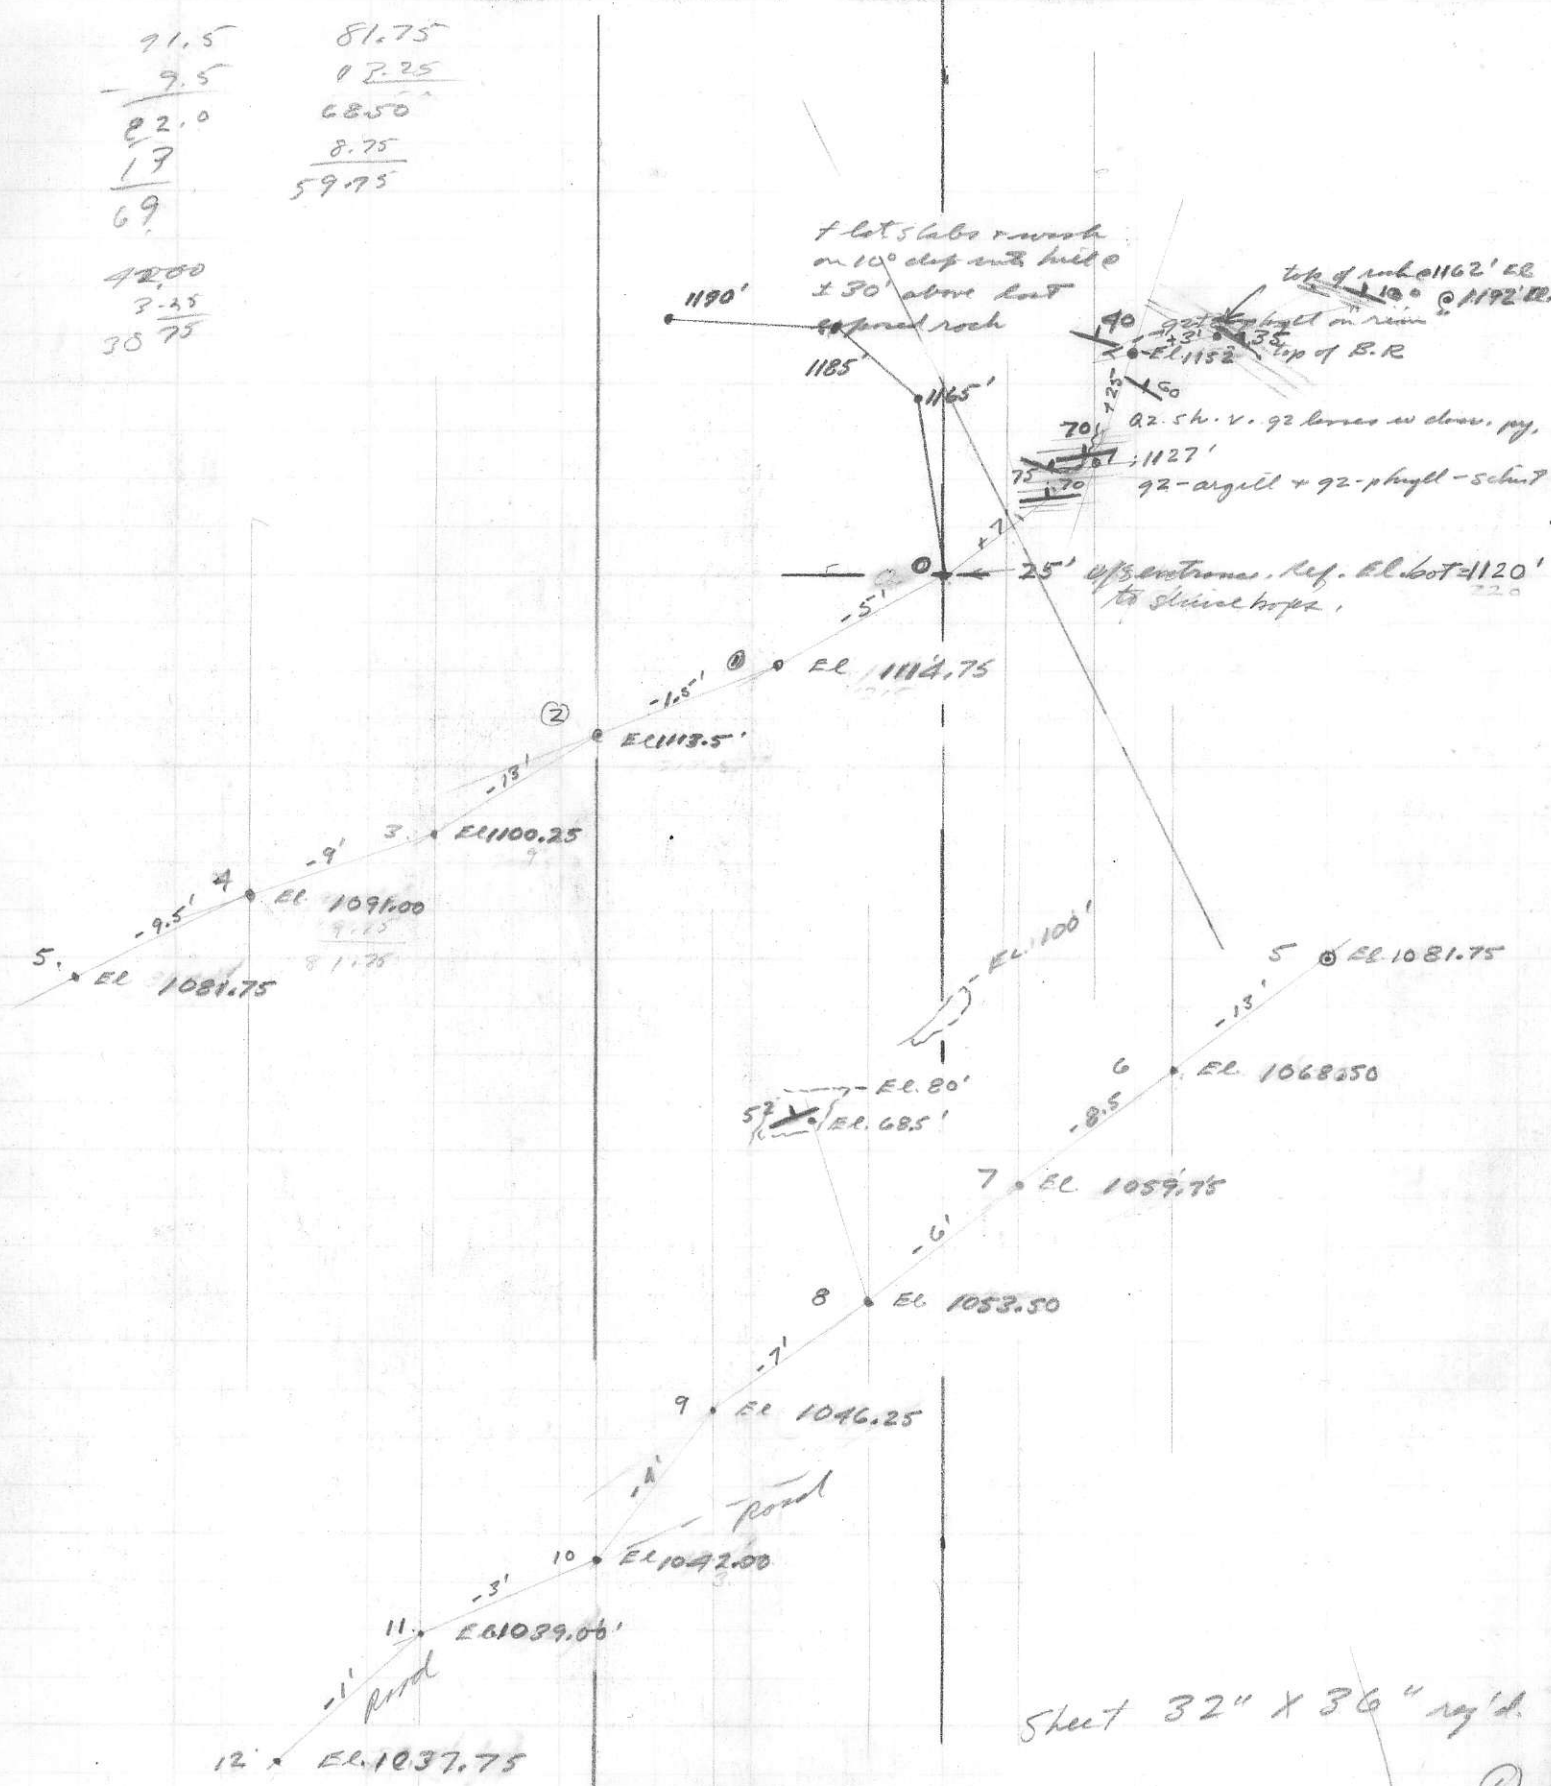 91.5
- 9.5
82.0
13
69
81.75
13.25
68.50
8.75
59.75
42.00
3.25
38 75
flat slabs + wash
on 10° dip with hill @
± 30' above last
exposed rock
1190'
1185'
1165'
top of rock @ 1162' El
10
1192' El.
40
qz phyll on "rim"
+3'
35
El. 1152
top of B.R
+25'
60
Qz. sh. v. qz lenses w diss. py.
70
1127'
75
70
qz-argill + qz-phyll-schist
+7'
0
25' entrance. Ref. El. bot = 1120'
to sluice boxes.
-5'
1
El 1114.75
-1.5'
2
El 1113.5'
-13'
3. El 1100.25
-9'
4
El 1091.00
9.25
81.75
-9.5'
5.
El 1081.75
El. 100'
5
El. 1081.75
-13'
6
El. 1068.50
El. 80'
52
El. 68.5'
-8.5
7
El. 1059.75
-6'
8
El 1053.50
-7'
9
El 1046.25
-4'
pond
10
El 1042.00
-3'
11.
El. 1039.00'
-1'
pond
12.
El. 1037.75
Sheet 32" X 36" req'd.